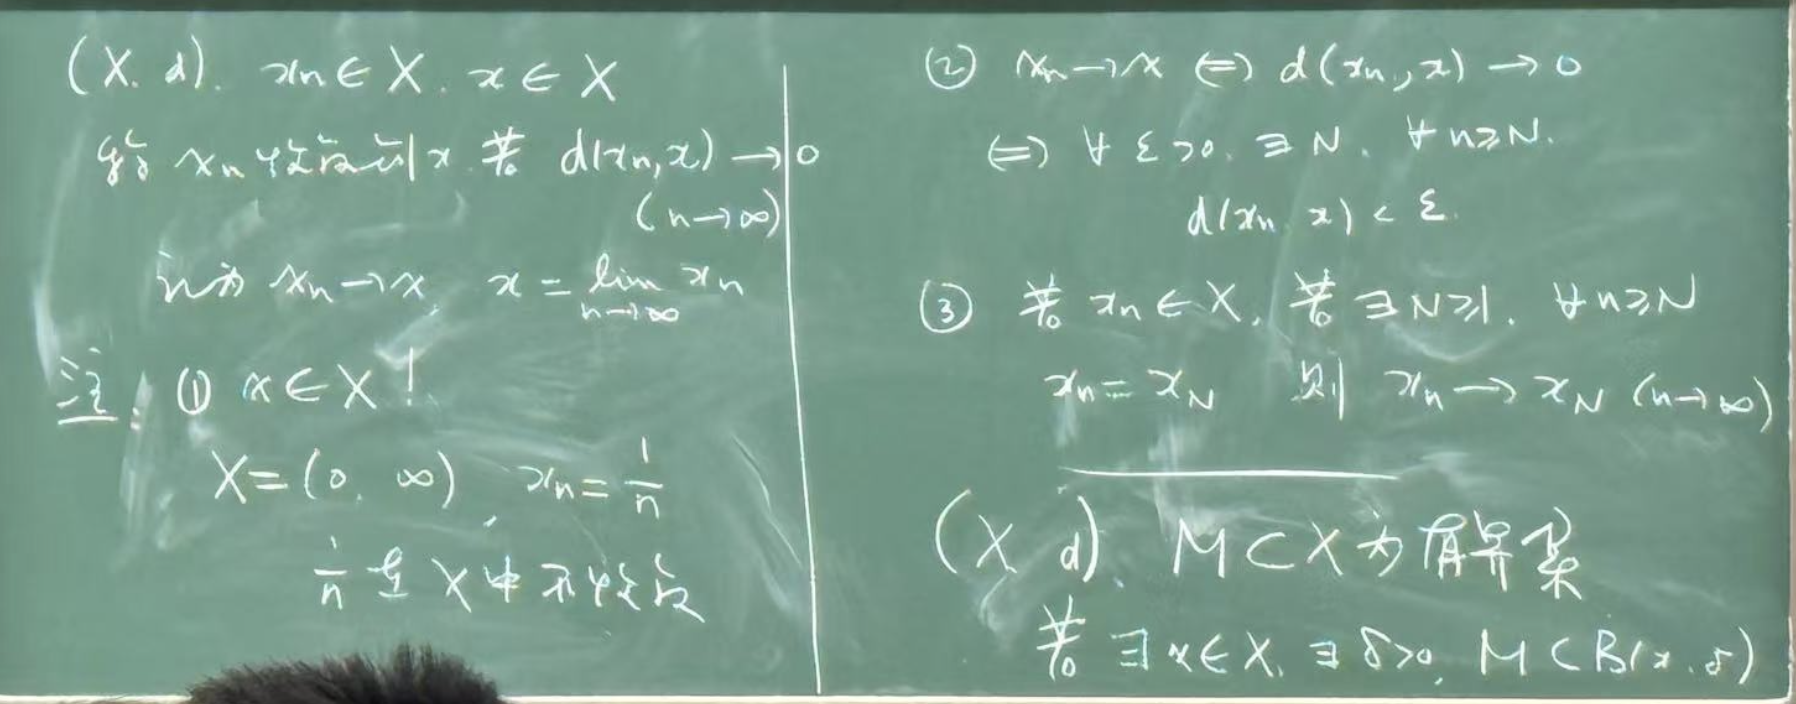 (X. d). xₙ∈X. x∈X
称 xₙ 收敛到 x 若 d(xₙ,x)→0
(n→∞)
记为 xₙ→x, x=lim xₙ
n→∞
注: ① x∈X!
X=(0, ∞), xₙ=1/n
1/n 在 X 中不收敛
② xₙ→x ⇔ d(xₙ,x)→0
⇔ ∀ε>0. ∃N. ∀n≥N.
d(xₙ, x)<ε.
③ 若 xₙ∈X, 若 ∃N≥1. ∀n≥N
xₙ=x_N 则 xₙ→x_N (n→∞)
(X d). M⊂X为有界集
若 ∃x∈X, ∃δ>0, M⊂B(x.δ)